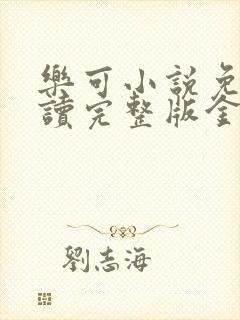 樂可小說免
讀完整版全
劉志海